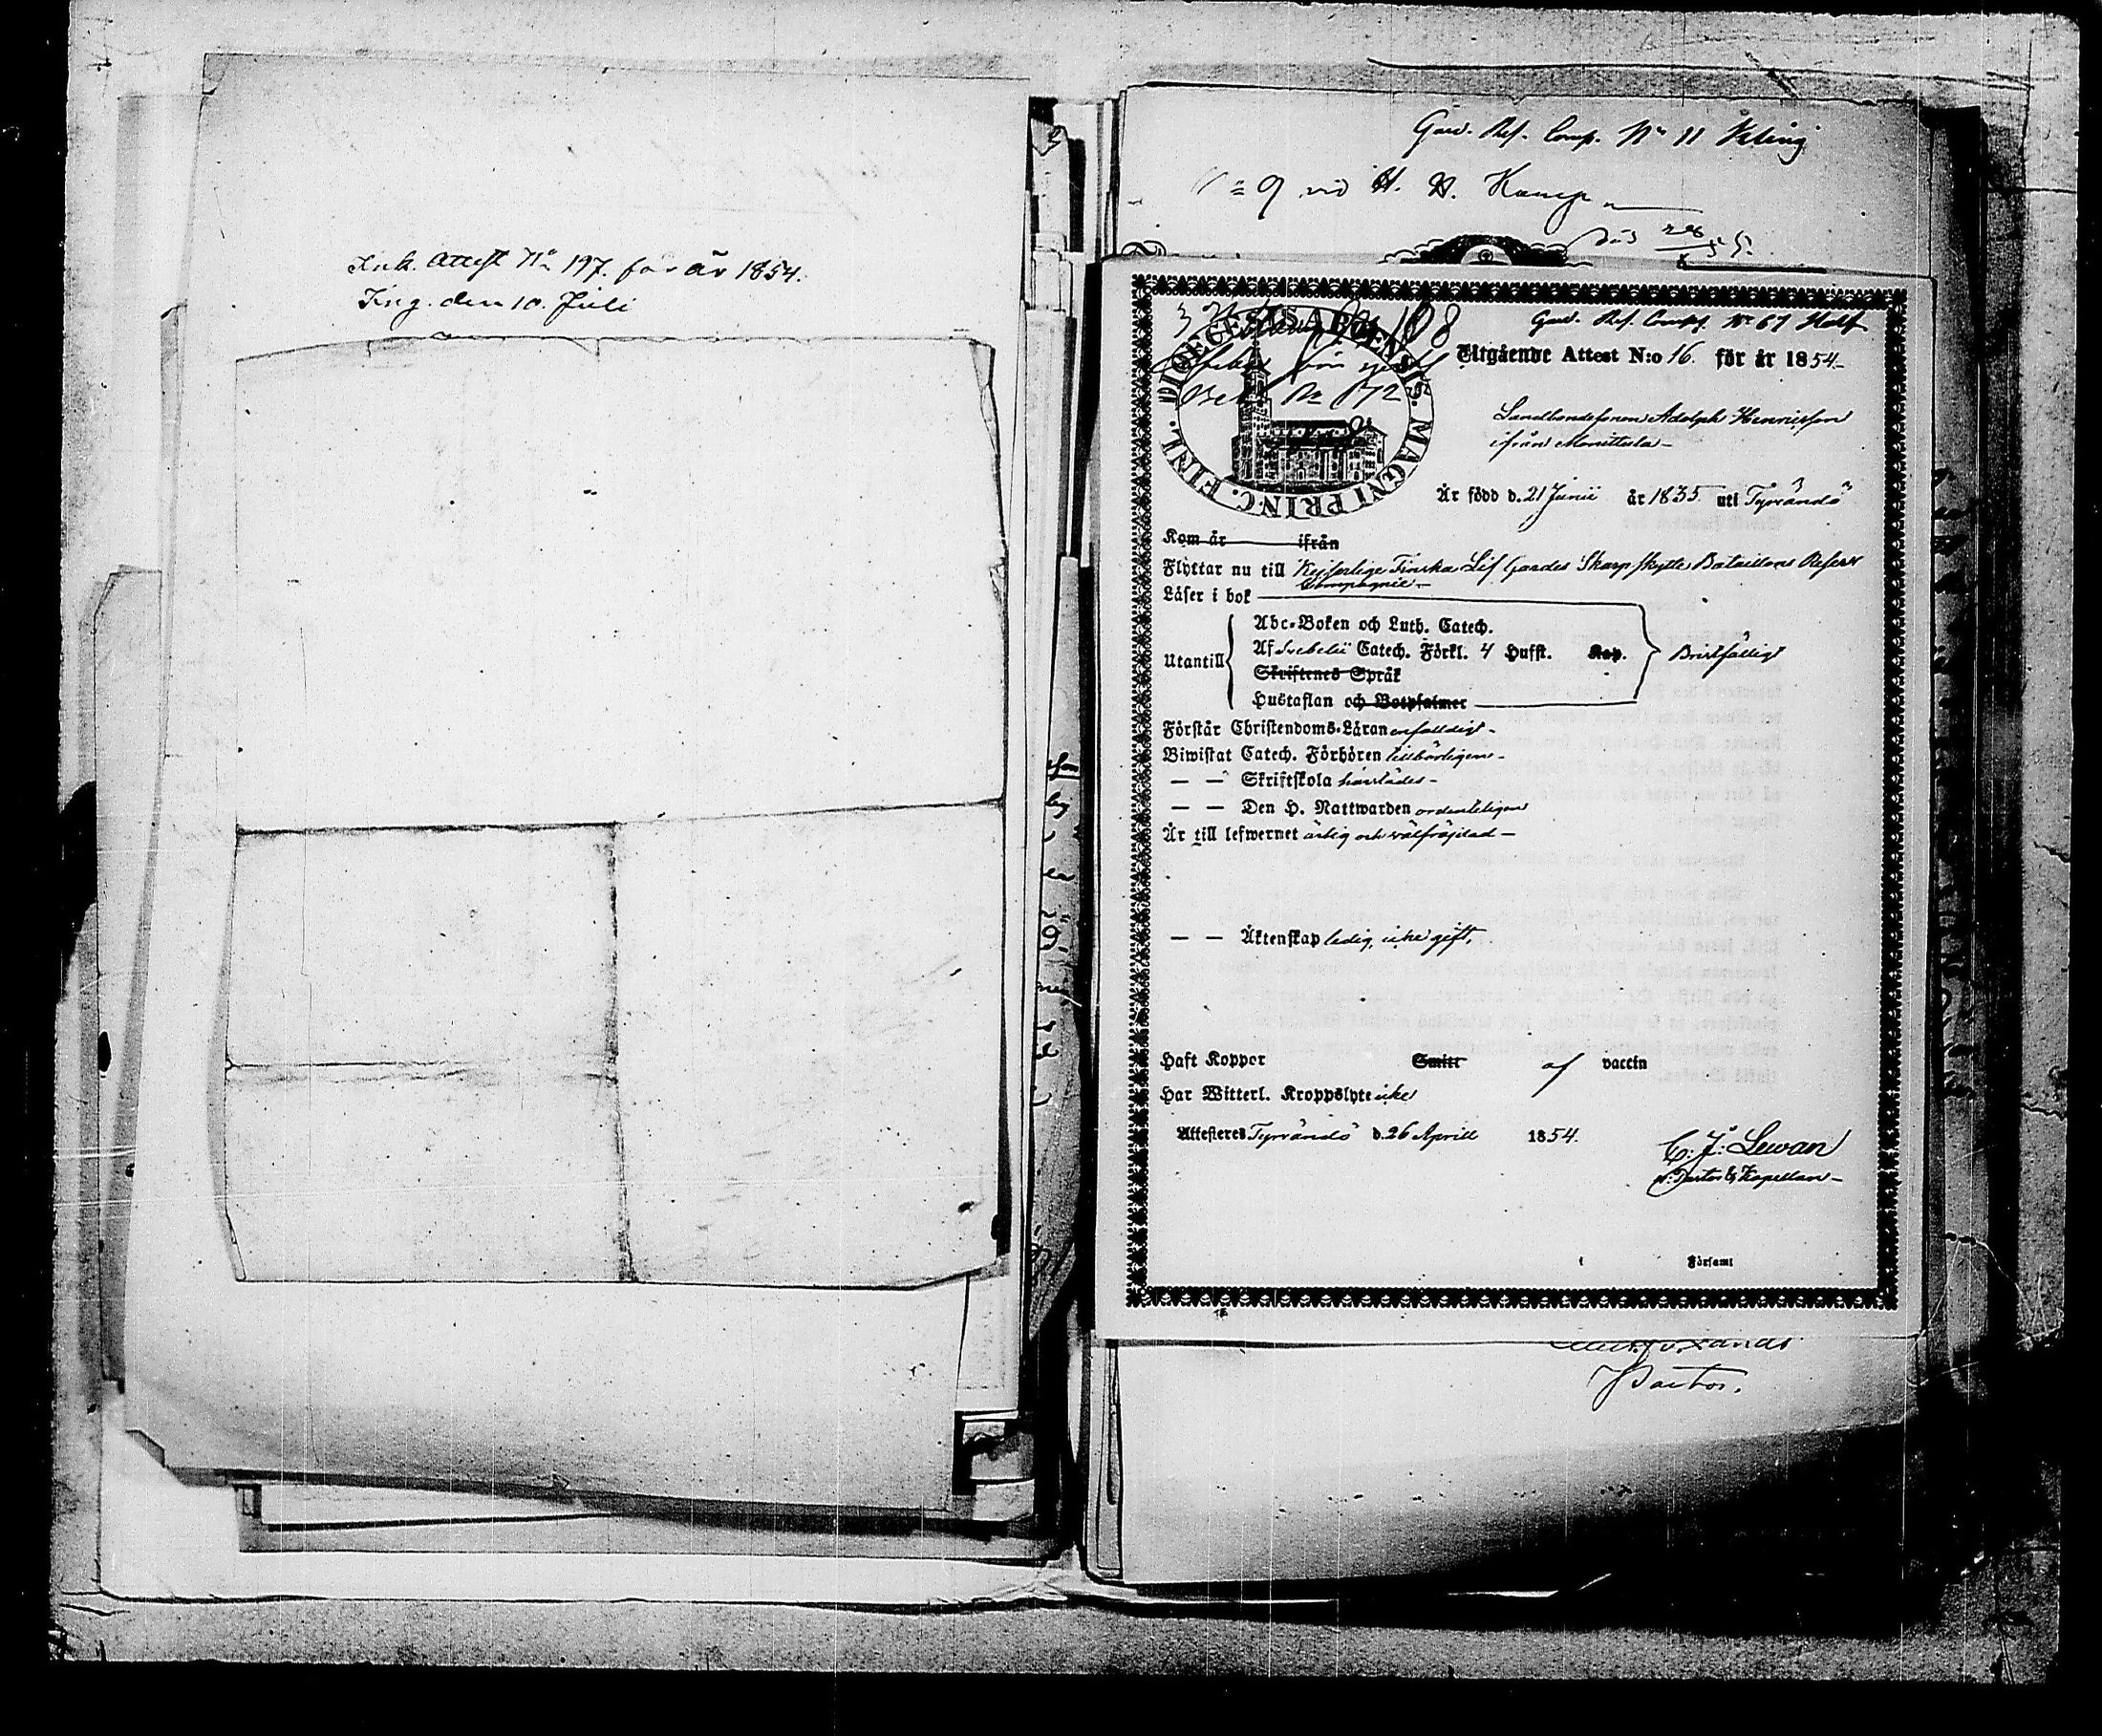 Ink. Attest No 197. för år 1854.
Ing. den 10. Juli
Gard. Ref. Comp. No 11 Kling
9 vid H. H. Kamp
108
Gard. Ref. Comp. No 67 Half
Utgående Attest N:o 16. för år 1854.
DIOECESIS ABOENSIS. MAGNI PRINC. FINL.
Landbondesonen Adolph Henricsson
ifrån Monittula
Är född d. 21 Junii år 1835 uti Tyrvändö
Kom år ifrån
Flyttar nu till Kejserlige Finska Lif Gardes Skarpskytte Bataillons Reserv
Compagnie
Läser i bok
Utantill
Abc-Boken och Luth. Catech.
Af Svebelii Catech. Förkl. 4 Hufst. Kap.
Skriftenes Språk
Hustaflan och Botpsalmer
Bristfälligt
Förstår Christendoms-Läran enfaldigt
Biwistat Catech. Förhören tillbörligen
— — Skriftskola
— — Den H. Nattwarden ordenteligen
Är till lefwernet ärlig och välfräjdad
— — Äktenskap ledig, icke gift.
Haft Koppor Smitt af vaccin
Har Witterl. Kroppslyte icke
Attesteras Tyrvändö d. 26 Aprill 1854.
C. J. Lewan
v. Pastor & Kapellan
i Församl
Pastor.